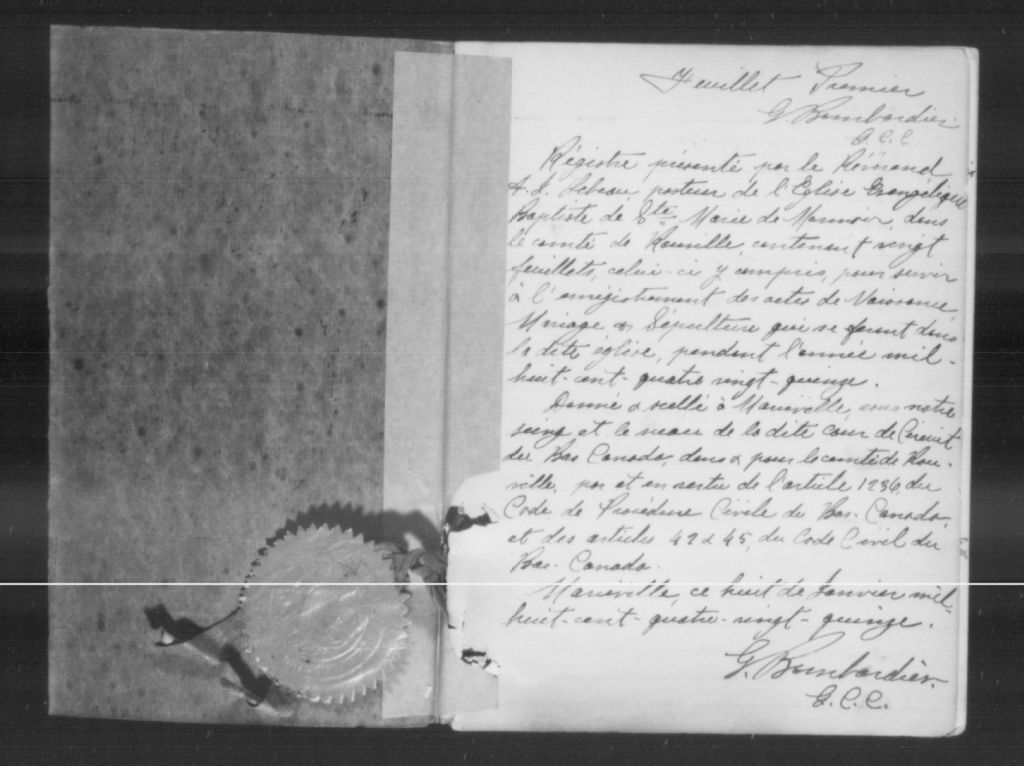 Feuillet Premier
G. Bombardier
G. C. C
Régistre présenté par le Révérend
A. L. Lebeau, pasteur de l'Eglise Evangelique
Baptiste de Ste Marie de Monnoir, dans
le comté de Rouville, contenant vingt
feuillets, celui-ci y compris, pour servir
à l'enrégistrement des actes de Naissance,
Mariage & Sépulture qui se feront dans
la dite église, pendant l'année mil-
huit-cent-quatre vingt-quinze.
Donné & scellé à Marieville, sous notre
seing et le sceau de la dite cour de Circuit
du Bas Canada, dans & pour le comté de Rou-
ville, par et en vertu de l'article 1236, du
Code de Procédure Civile du Bas-Canada,
et des articles 42 & 45, du Code Civil du
Bas-Canada.
Marieville, ce huit de Janvier mil-
huit-cent-quatre-vingt-quinze.
G. Bombardier.
G. C. C.